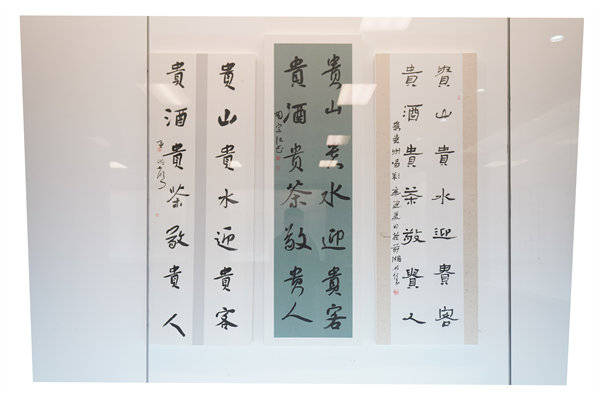 貴山貴水迎貴客
貴酒貴茶敬貴人
贵山贵水迎貴客
貴酒貴茶敬贵人
貴山貴水迎貴客
貴酒貴茶敬貴人